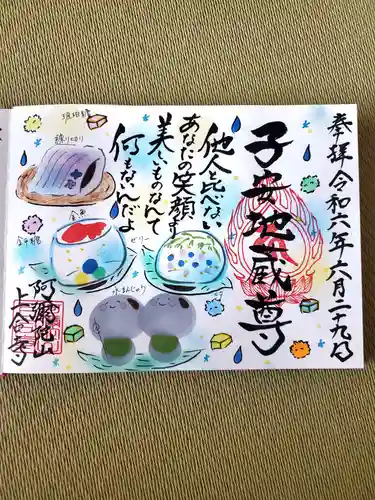 奉拝 令和六年六月二十九日
子安地蔵尊
他人と比べない
あなたの笑顔より
美しいものなんて
何もないんだよ
琥珀糖
練りきり
金魚
金平糖
ゼリー
水まんじゅう
阿彌陀山
上谷寺